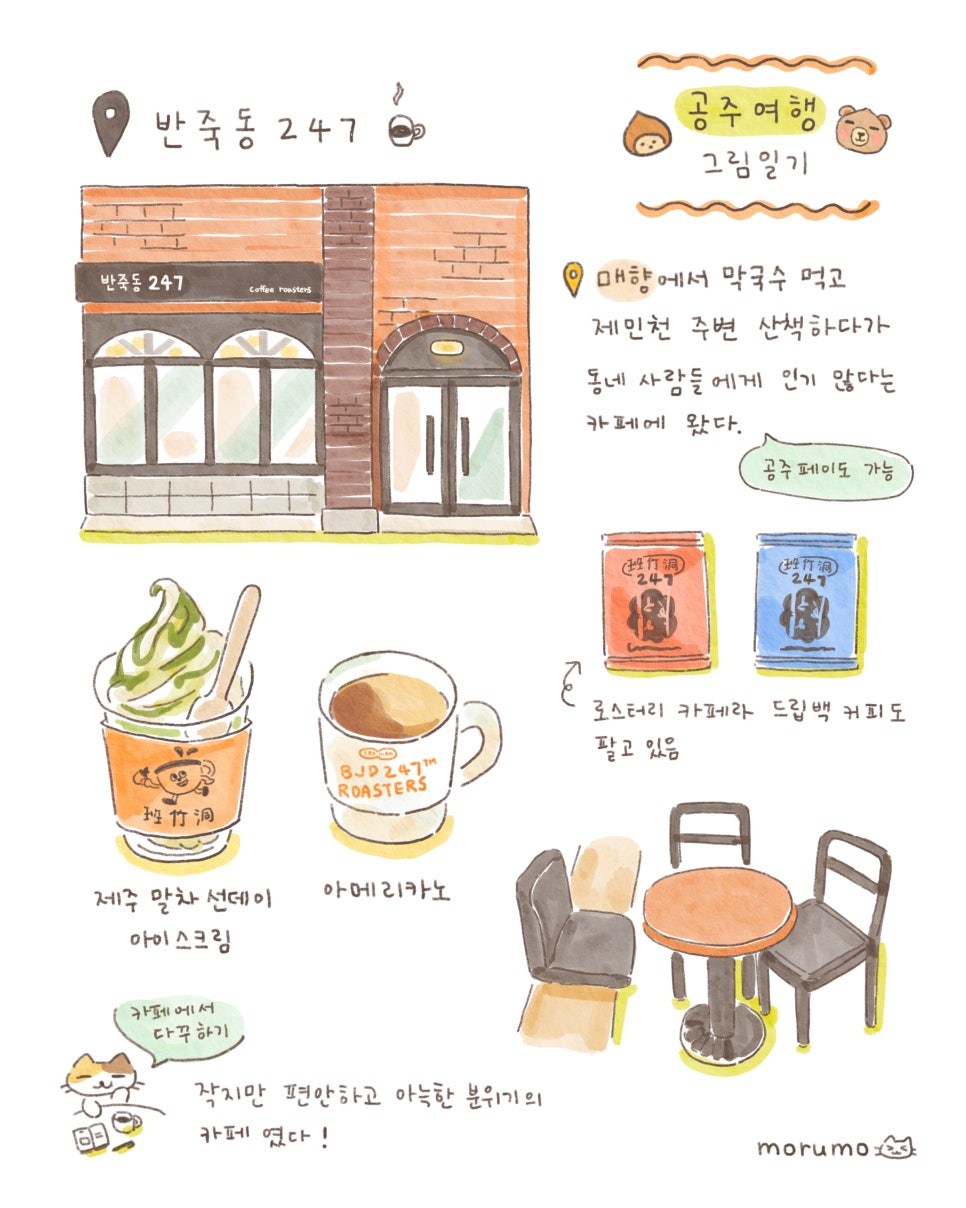 반죽동 247
공주여행
그림일기
반죽동 247
coffee roasters
매향에서 막국수 먹고
제민천 주변 산책하다가
동네 사람들에게 인기 많다는
카페에 왔다.
공주페이도 가능
班竹洞
247
班竹洞
247
로스터리 카페라 드립백 커피도
팔고 있음
班竹洞
BJD247™
ROASTERS
제주 말차 선데이
아이스크림
아메리카노
카페에서
다꾸하기
작지만 편안하고 아늑한 분위기의
카페 였다!
morumo